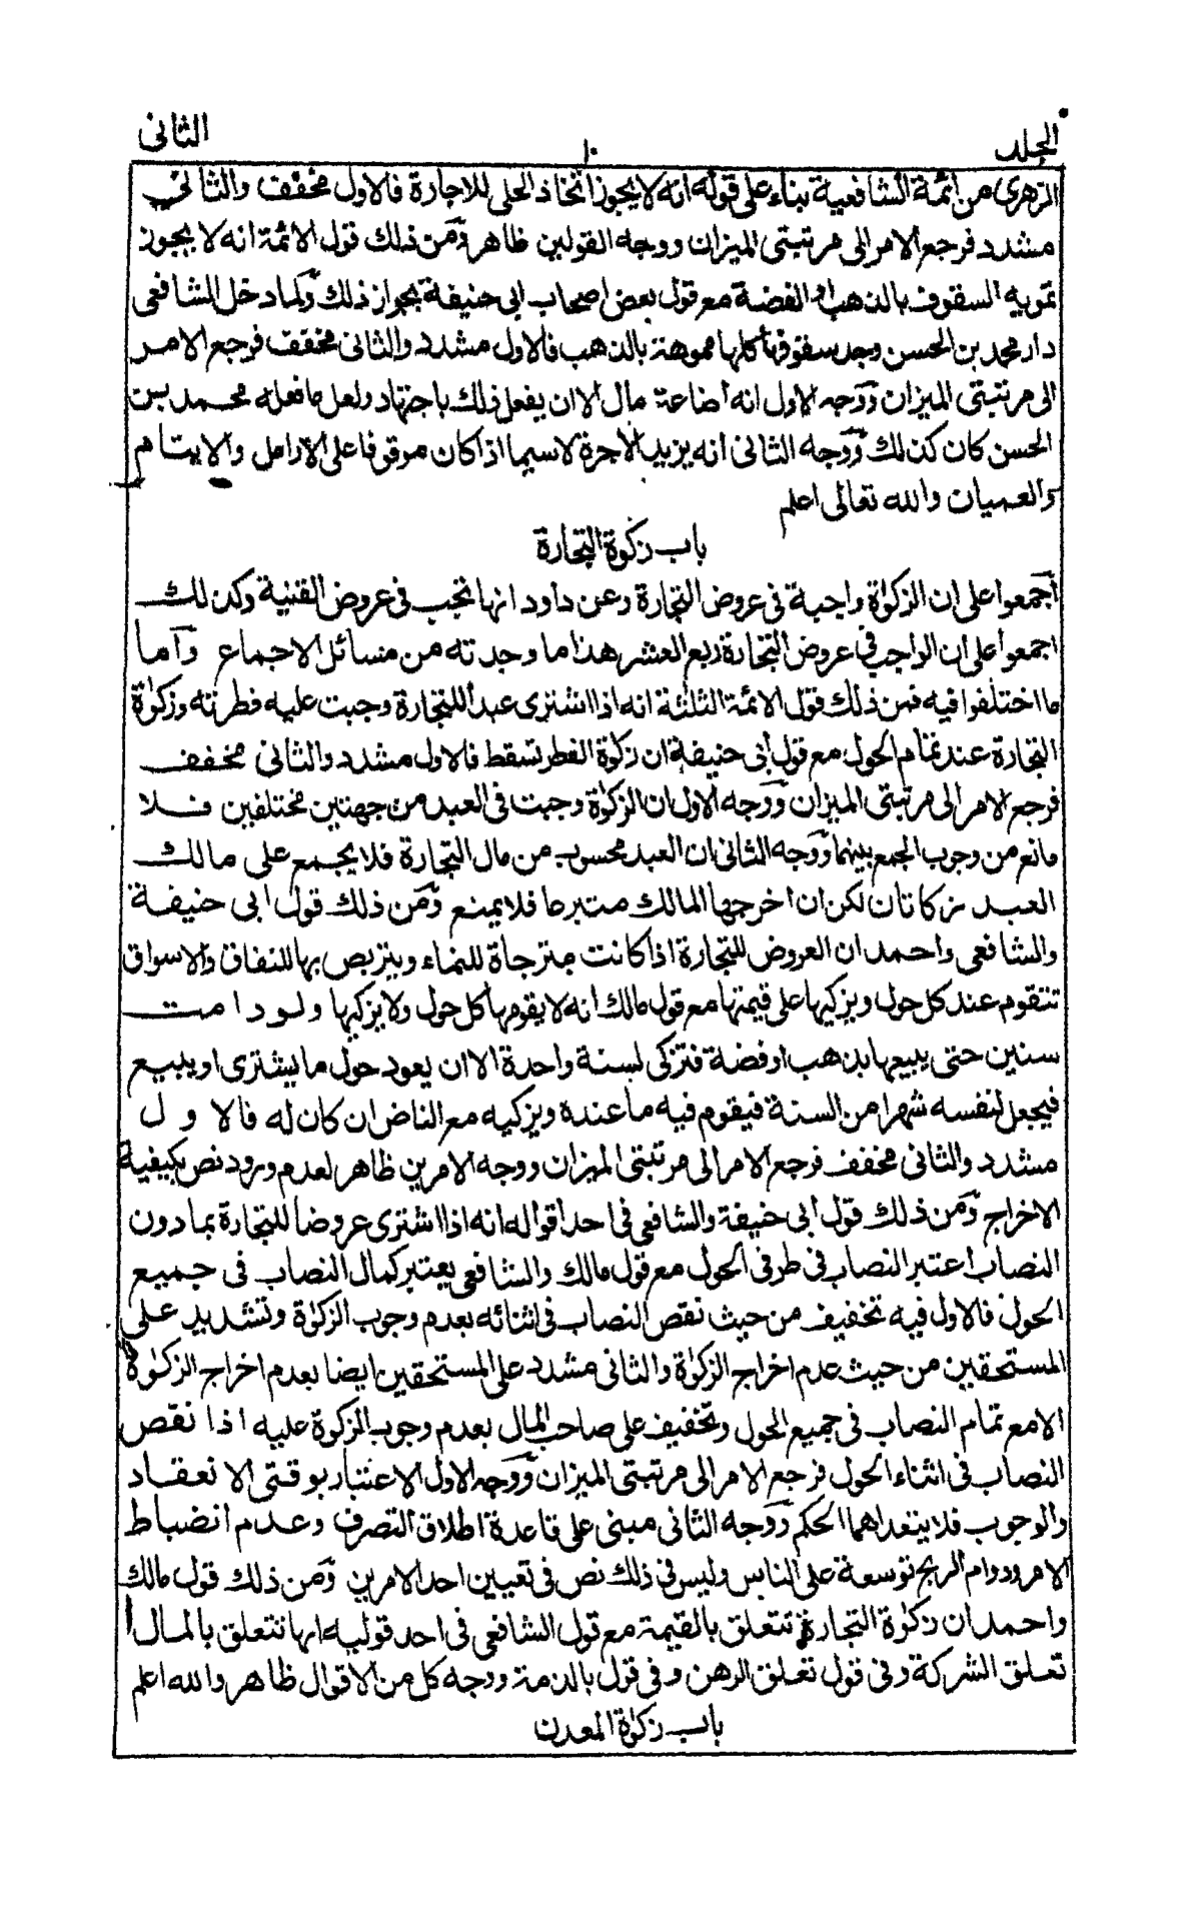 الجلد
١٠
الثانى
الزهرى من ائمة الشافعية بناء على قوله انه لا يجوز اتخاذ الحلى للاجارة فالاول مخفف والثانى
مشدد فرجع الامر الى مرتبتى الميزان ووجه القولين ظاهر ومن ذلك قول الائمة انه لا يجوز
تمويه السقوف بالذهب او الفضة مع قول بعض اصحاب ابى حنيفة بجواز ذلك ولما دخل الشافعى
دار محمد بن الحسن وجد سقوفها كلها مموهة بالذهب فالاول مشدد والثانى مخفف فرجع الامر
الى مرتبتى الميزان ووجه الاول انه اضاعة مال الا ان يفعل ذلك باجتهاد ولعل ما فعله محمد بن
الحسن كان كذلك ووجه الثانى انه يزيد الاجرة لا سيما اذا كان موقوفا على الارامل والايتام
والعميان والله تعالى اعلم
باب زكوة التجارة
اجمعوا على ان الزكوٰة واجبة فى عروض التجارة وعن داود انها تجب فى عروض القنية وكذلك
اجمعوا على ان الواجب فى عروض التجارة ربع العشر هذا ما وجدته من مسائل الاجماع واما
ما اختلفوا فيه فمن ذلك قول الائمة الثلثة انه اذا اشترى عبدا للتجارة وجبت عليه فطرته وزكوٰة
التجارة عند تمام الحول مع قول أبى حنيفة ان زكوة الفطر تسقط فالاول مشدد والثانى مخفف
فرجع الامر الى مرتبتى الميزان ووجه الاول ان الزكوٰة وجبت فى العبد من جهتين مختلفين فلا
مانع من وجوب الجمع بينهما ووجه الثانى ان العبد محسوب من مال التجارة فلا يجمع على مالك
العبد زكاتان لكن ان اخرجها المالك متبرعا فلا يمنع ومن ذلك قول ابى حنيفة
والشافعى واحمد ان العروض للتجارة اذا كانت مترجاة للنماء ويتربص بها للنفاق والاسواق
تتقوم عند كل حول ويزكيها على قيمتها مع قول مالك انه لا يقومها كل حول ولا يزكيها ولو دامت
سنين حتى يبيعها بذهب او فضة فتزكى لسنة واحدة الا ان يعود حول ما يشترى او يبيع
فيجعل لنفسه شهرا من السنة فيقوم فيه ما عنده ويزكيه مع الناض ان كان له فالاول
مشدد والثانى مخفف فرجع الامر الى مرتبتى الميزان ووجه الامرين ظاهر لعدم ورود نص بكيفية
الاخراج ومن ذلك قول ابى حنيفة والشافعى فى احد اقواله انه اذا اشترى عروضا للتجارة بما دون
النصاب اعتبر النصاب فى طرفى الحول مع قول مالك والشافعى يعتبر كمال النصاب فى جميع
الحول فالاول فيه تخفيف من حيث نقص النصاب فى اثنائه بعدم وجوب الزكوٰة وتشديد على
المستحقين من حيث عدم اخراج الزكوٰة والثانى مشدد على المستحقين ايضا بعدم اخراج الزكوٰة
الا مع تمام النصاب فى جميع الحول وتخفيف على صاحب المال بعدم وجوب الزكوة عليه اذا نقص
النصاب فى اثناء الحول فرجع الامر الى مرتبتى الميزان ووجه الاول الاعتبار بوقتى الانعقاد
والوجوب فلا يتعداهما الحكم ووجه الثانى مبنى على قاعدة اطلاق التصرف وعدم انضباط
الامر ودوام الربح توسعة على الناس وليس فى ذلك نص فى تعيين احد الامرين ومن ذلك قول مالك
واحمد ان زكوٰة التجارة تتعلق بالقيمة مع قول الشافعى فى احد قوليه انها تتعلق بالمال
تعلق الشركة وفى قول تعلق الرهن وفى قول بالذمة ووجه كل من الاقوال ظاهر والله اعلم
باب زكوٰة المعدن